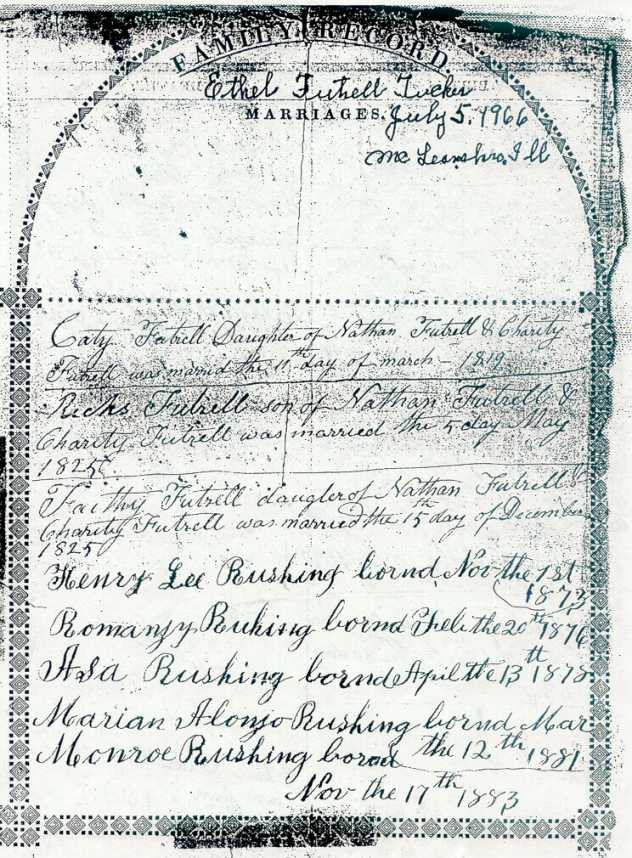 FAMILY RECORD
Ethel Futrell Tucker
MARRIAGES. July 5, 1966
Mc Leansboro, Ill
Caty Futrell Daughter of Nathan Futrell & Charity
Futrell was marrid the 11th day of march - 1819
Ricks Futrell son of Nathan Futrell &
Charity Futrell was married the 5 day May
1825
Faithy Futrell daugler of Nathan Futrell &
Charity Futrell was married the 15th day of December
1825
Henry Lee Rushing bornd Nov the 1st
1873
Romansy Ruhing bornd Feb the 20th 1876
ASa Rushing bornd April the 13th 1878
Marian Alonzo Rushing bornd Mar
the 12th 1881
Monroe Rushing bornd
Nov the 17th 1883